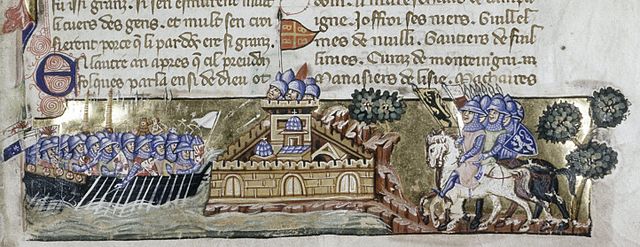 fu issi granz. si sen esmurent mult
li cuers des gens. et mult sen croi
sierent porce q li pardõ ere si granz.
En lautre an apres q cil preudom
folques parla ensi de dieu ot
igne. Joffroi ses niers. Guillel
mes de nuilli. Gautiers de fuil
limes. Euraz de monteingni.
Manasiers de lisle. Machaires